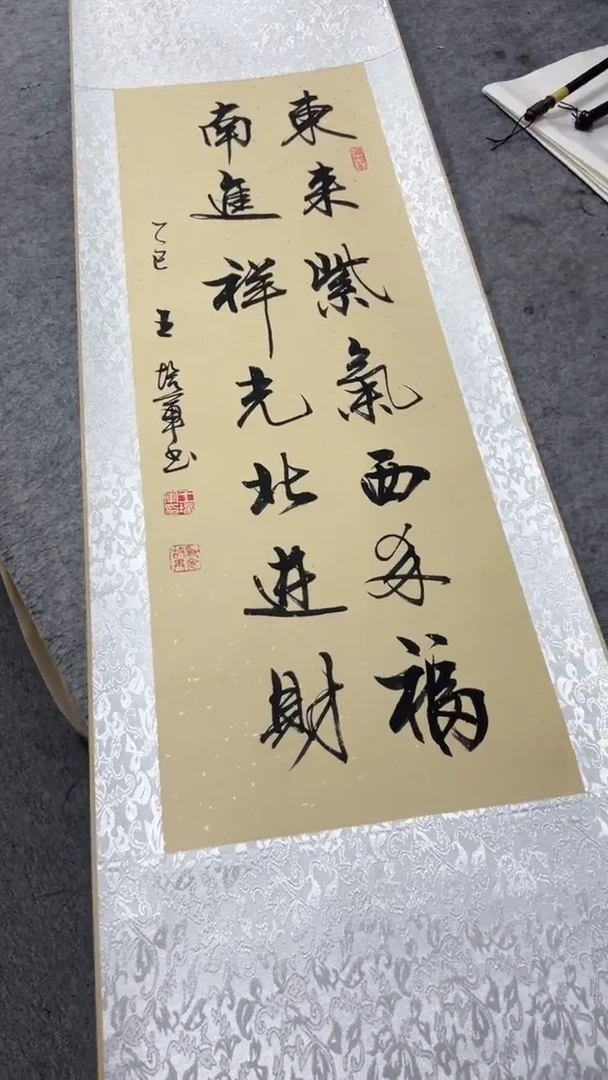 東来紫氣西来福
南進祥光北进財
乙巳 王培軍书